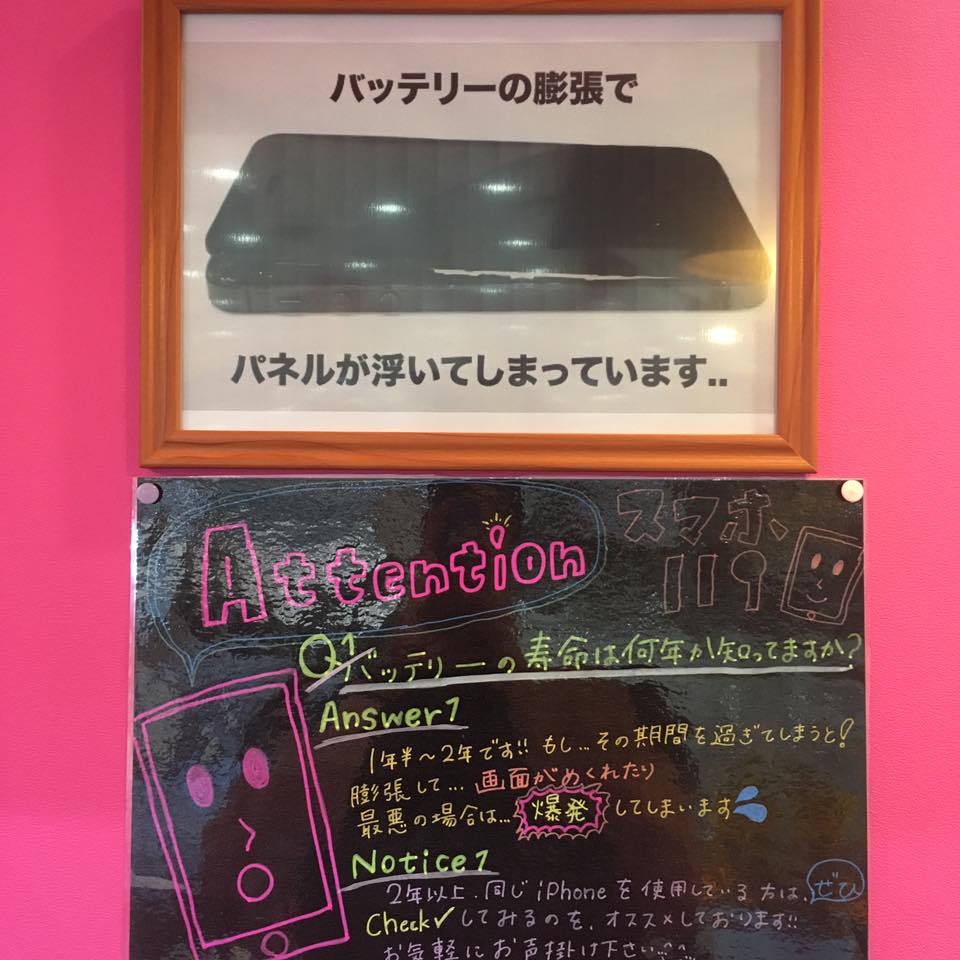 バッテリーの膨張で
パネルが浮いてしまっています..
Attention
スマホ
119
Q1 バッテリーの寿命は何年か知ってますか？
Answer1
1年半～2年です!! もし…その期間を過ぎてしまうと!
膨張して… 画面がめくれたり
最悪の場合は… 爆発 してしまいます
Notice1
2年以上、同じiPhoneを使用している方は、ぜひ
Check✓してみるのを、オススメしております!!
お気軽にお声掛け下さい